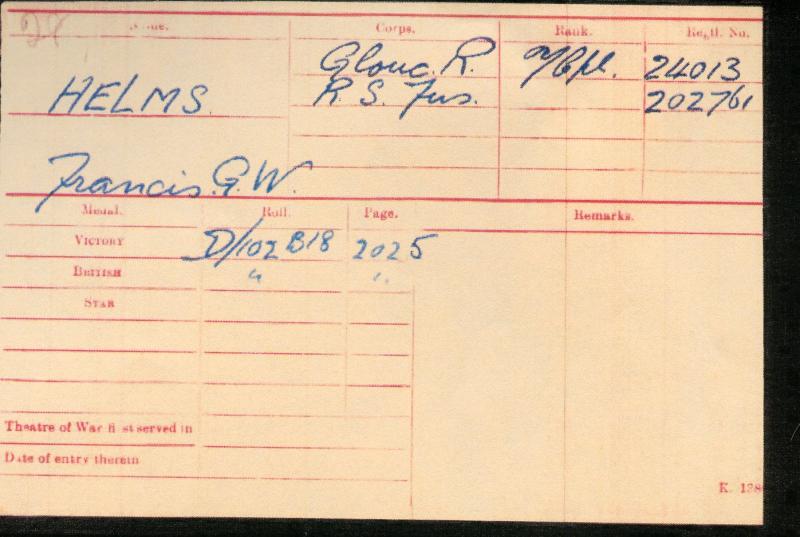 Corps. Rank. Regtl. No.
Glouc. R. 24013
HELMS R. S. Fus. 202761
Francis. G. W.
Medal. Roll. Page. Remarks.
VICTORY D/102 B18 2025
BRITISH " "
STAR
Theatre of War first served in
Date of entry therein
K. 138